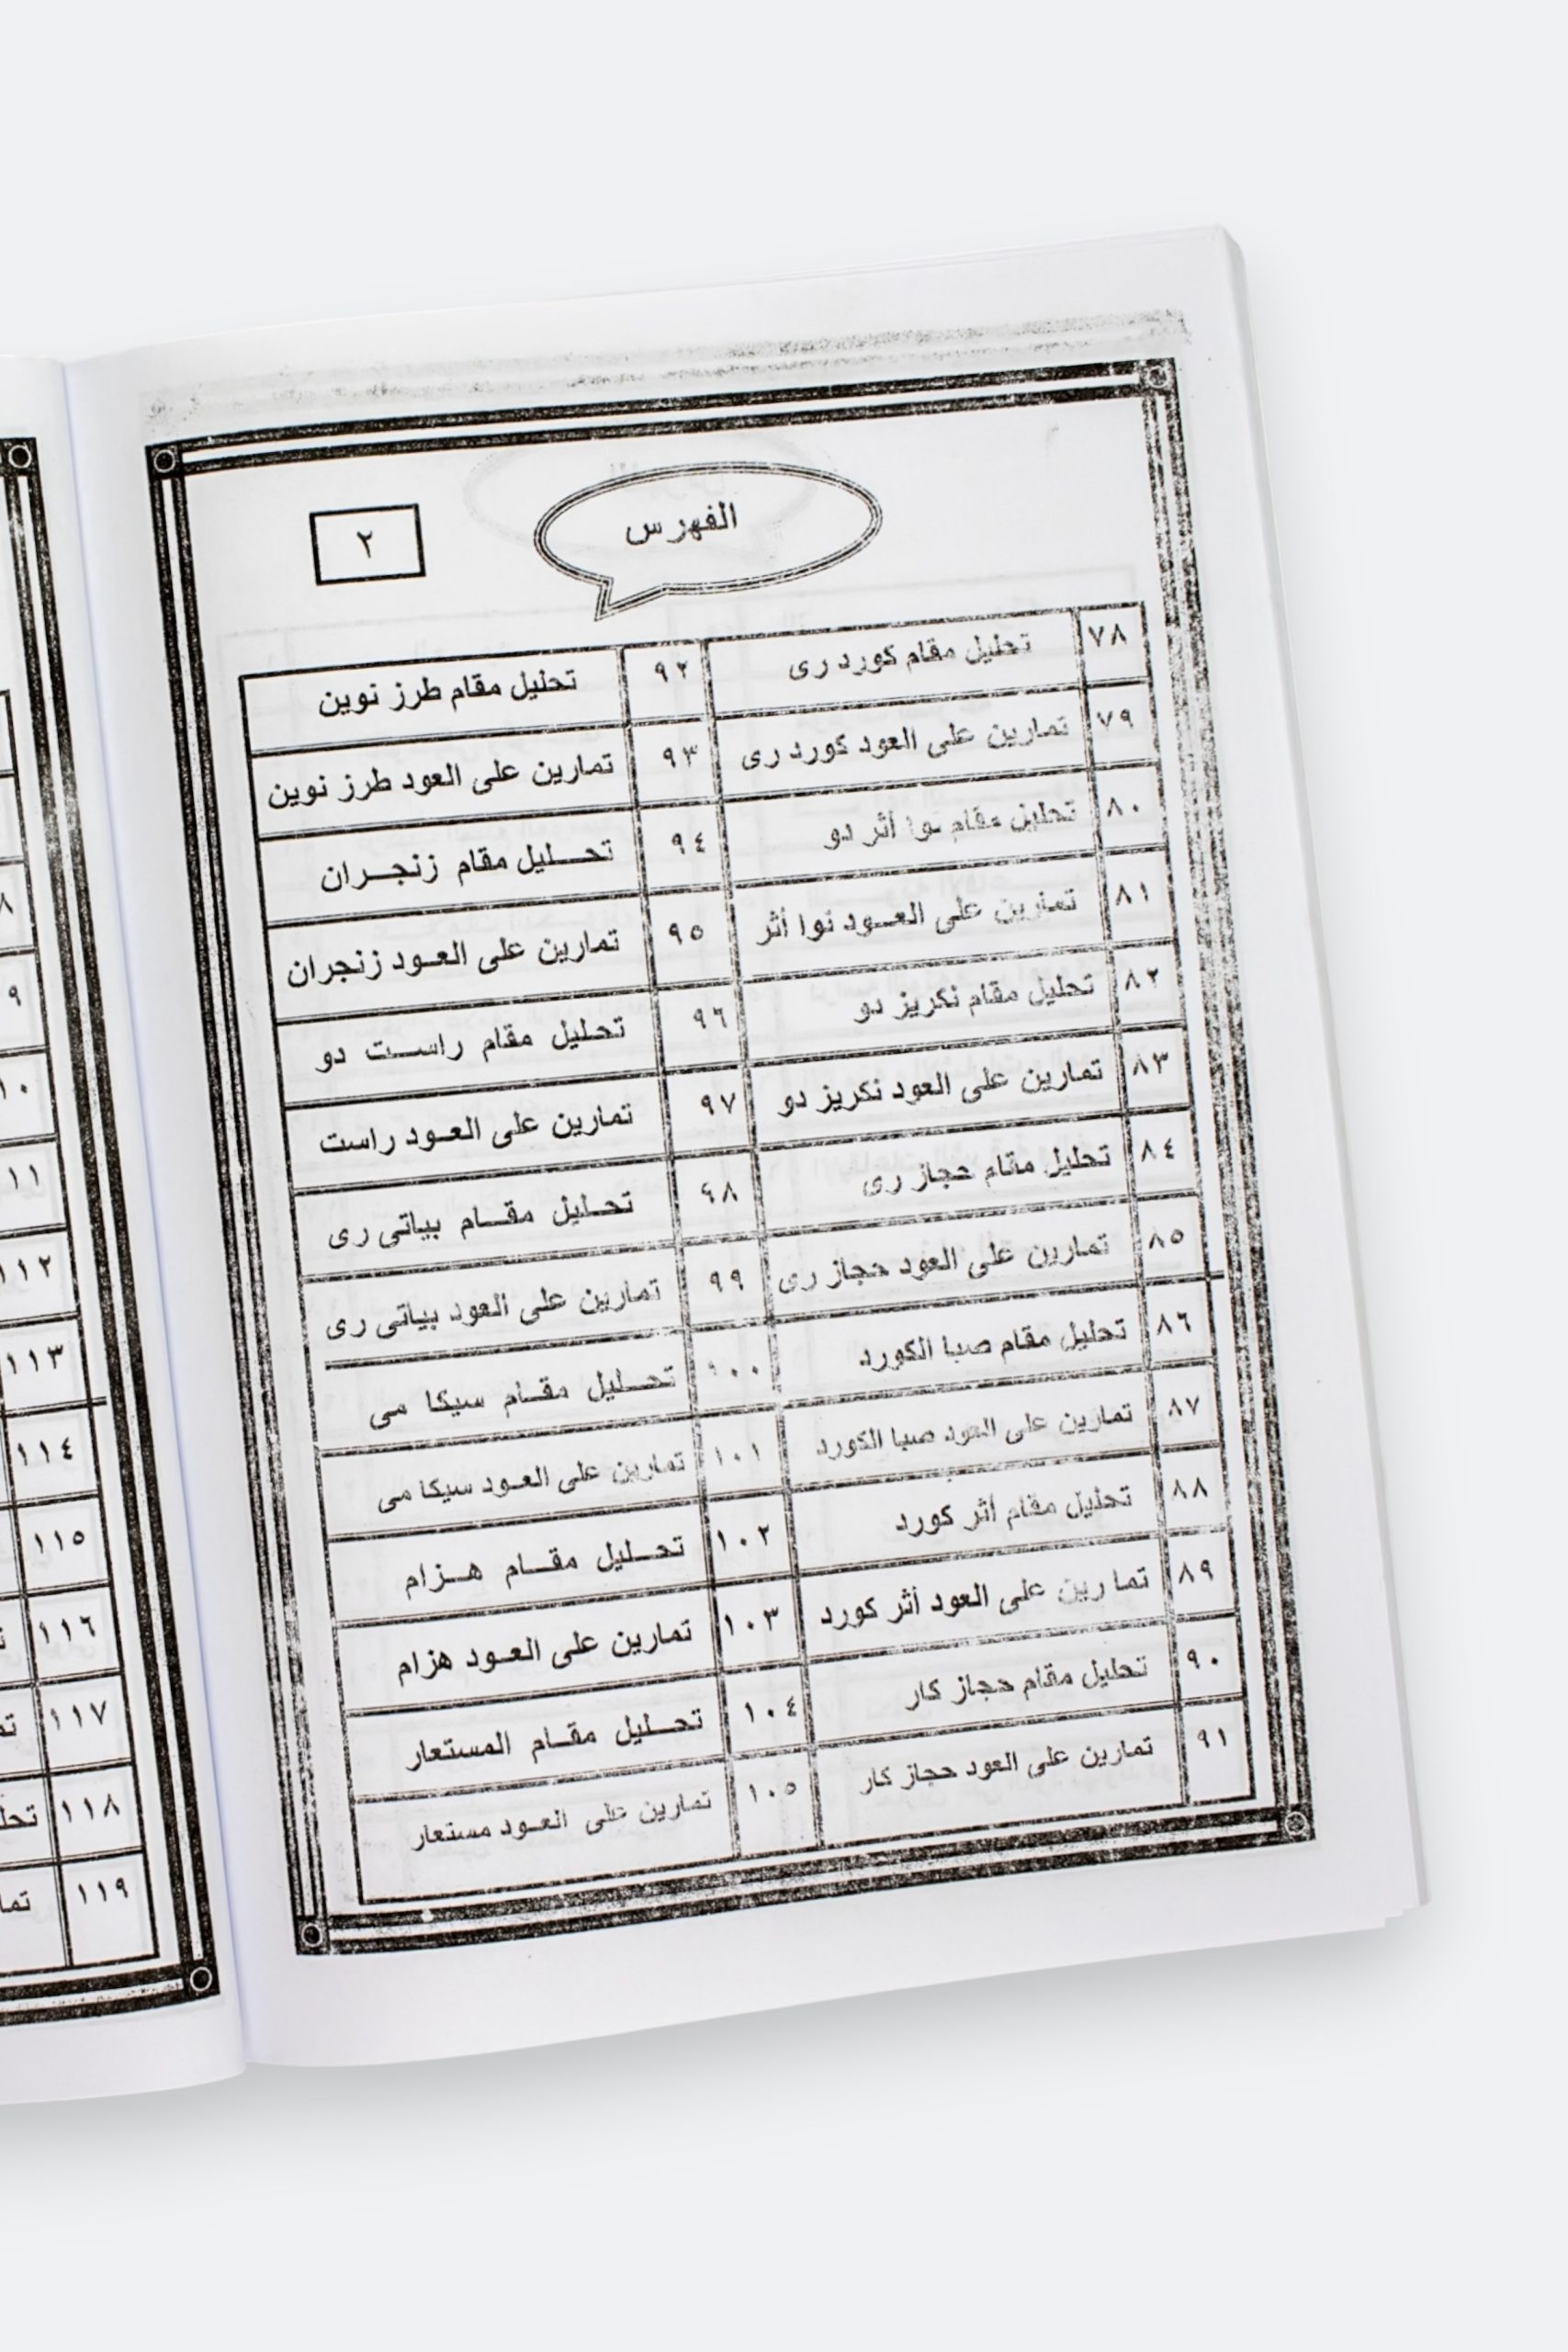 الفهرس
٢
٧٨ تحليل مقام كورد رى ٩٢ تحليل مقام طرز نوين
٧٩ تمارين على العود كورد رى ٩٣ تمارين على العود طرز نوين
٨٠ تحليل مقام نوا أثر دو ٩٤ تحليل مقام زنجران
٨١ تمارين على العود نوا أثر ٩٥ تمارين على العود زنجران
٨٢ تحليل مقام نكريز دو ٩٦ تحليل مقام راست دو
٨٣ تمارين على العود نكريز دو ٩٧ تمارين على العود راست
٨٤ تحليل مقام حجاز رى ٩٨ تحليل مقام بياتى رى
٨٥ تمارين على العود حجاز رى ٩٩ تمارين على العود بياتى رى
٨٦ تحليل مقام صبا الكورد ١٠٠ تحليل مقام سيكا مى
٨٧ تمارين على العود صبا الكورد ١٠١ تمارين على العود سيكا مى
٨٨ تحليل مقام أثر كورد ١٠٢ تحليل مقام هزام
٨٩ تمارين على العود أثر كورد ١٠٣ تمارين على العود هزام
٩٠ تحليل مقام حجاز كار ١٠٤ تحليل مقام المستعار
٩١ تمارين على العود حجاز كار ١٠٥ تمارين على العود مستعار
١١٢
١١٣
١١٤
١١٥
١١٦
١١٧
١١٨
١١٩